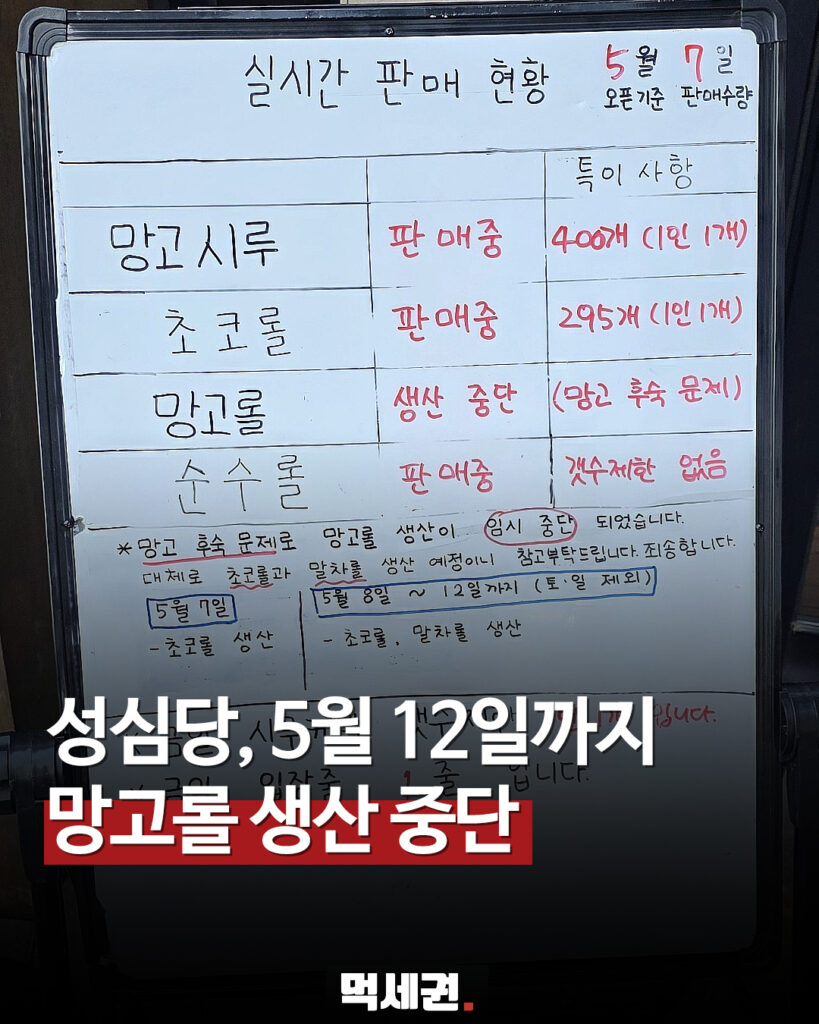 실시간 판매 현황
5월 7일
오픈기준 판매수량
특이 사항
망고시루 판매중 400개 (1인 1개)
초코롤 판매중 295개 (1인 1개)
망고롤 생산 중단 (망고 후숙 문제)
순수롤 판매중 갯수제한 없음
* 망고 후숙 문제로 망고롤 생산이 임시 중단 되었습니다.
대체로 초코롤과 말차롤 생산 예정이니 참고부탁드립니다. 죄송합니다.
5월 7일
- 초코롤 생산
5월 8일 ~ 12일까지 (토·일 제외)
- 초코롤, 말차롤 생산
성심당, 5월 12일까지
망고롤 생산 중단
먹세권.